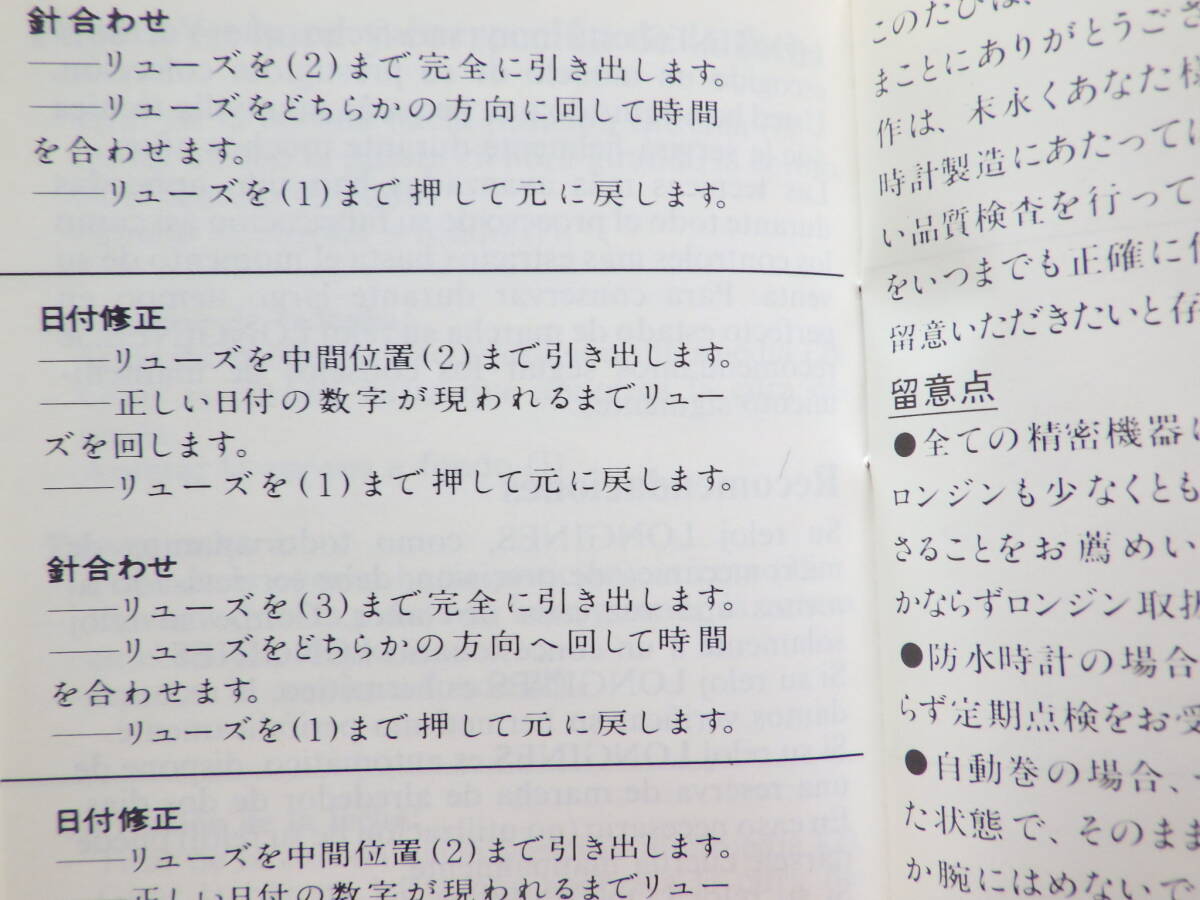 針合わせ
——リューズを(2)まで完全に引き出します。
——リューズをどちらかの方向に回して時間
を合わせます。
——リューズを(1)まで押して元に戻します。
日付修正
——リューズを中間位置(2)まで引き出します。
——正しい日付の数字が現われるまでリュー
ズを回します。
——リューズを(1)まで押して元に戻します。
針合わせ
——リューズを(3)まで完全に引き出します。
——リューズをどちらかの方向へ回して時間
を合わせます。
——リューズを(1)まで押して元に戻します。
日付修正
——リューズを中間位置(2)まで引き出します。
——正しい日付の数字が現われるまでリュー
このたびは、
まことにありがとうござ
作は、末永くあなた様
時計製造にあたっては
い品質検査を行って
をいつまでも正確に
留意いただきたいと存
留意点
●全ての精密機器は
ロンジンも少なくとも
さることをお薦めい
かならずロンジン取扱
●防水時計の場合
らず定期点検をお受
●自動巻の場合、
た状態で、そのまま
か腕にはめないで